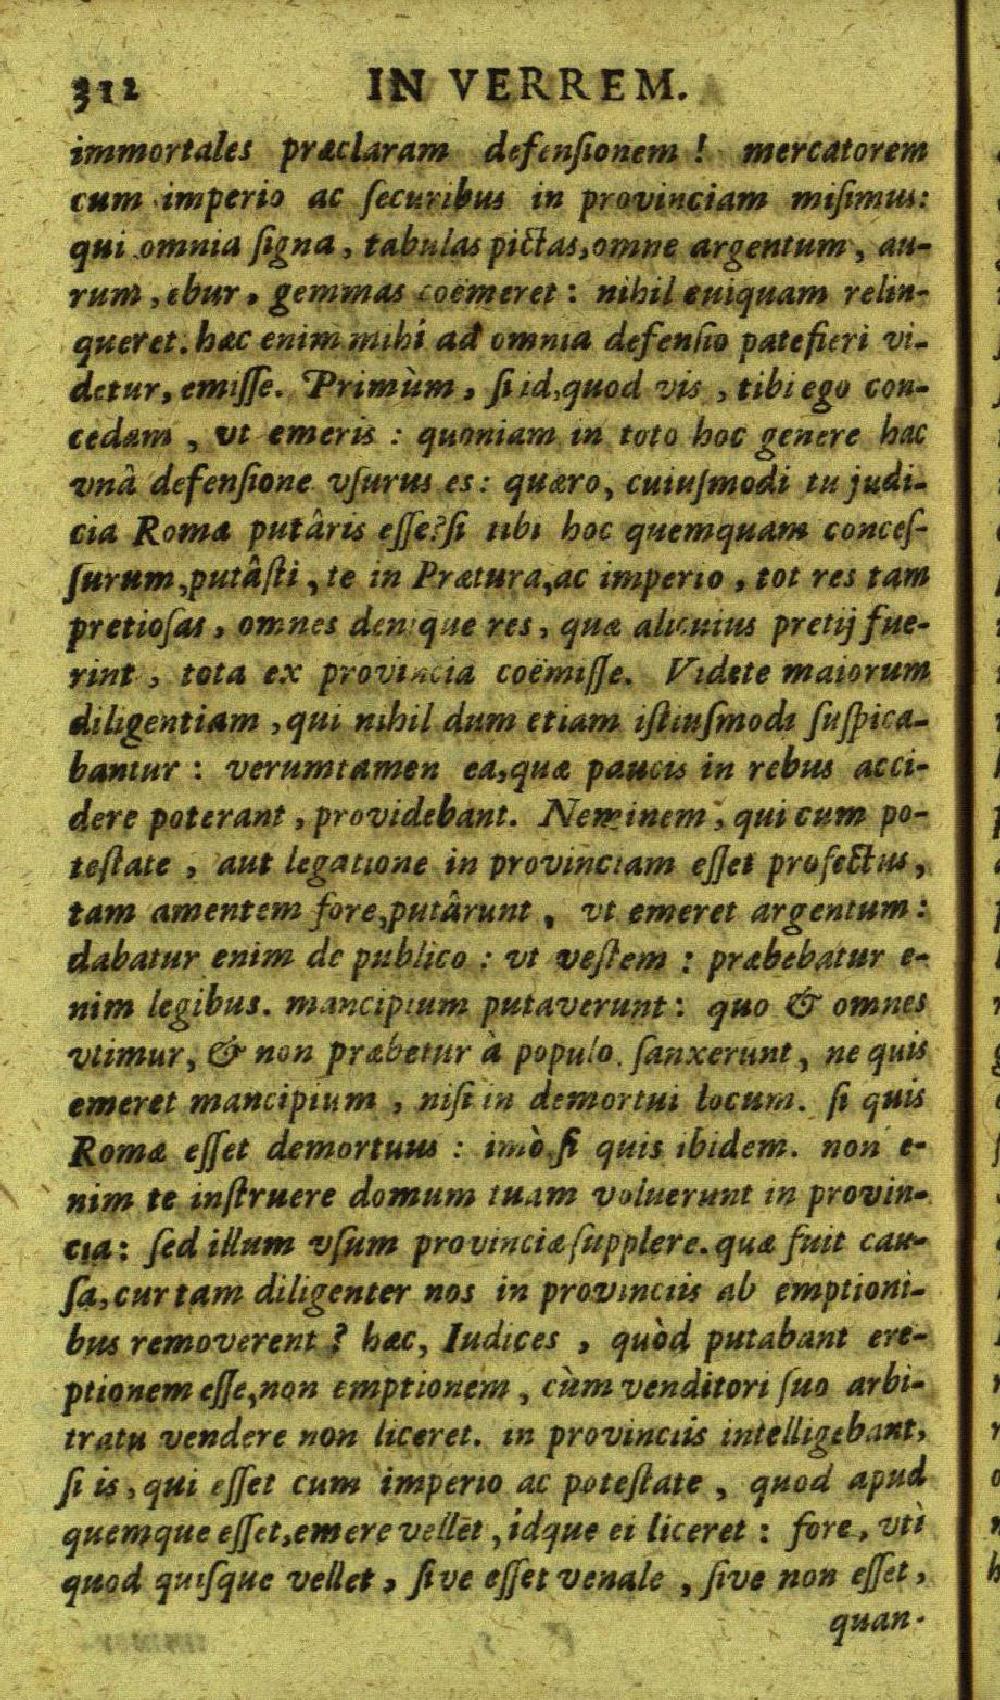 312 IN VERREM.
immortales præclaram defenſionem ! mercatorem
cum imperio ac ſecuribus in provinciam miſimus:
qui omnia ſigna, tabulas pictas, omne argentum, au-
rum, ebur, gemmas coëmeret: nihil cuiquam relin-
queret. hæc enim mihi ad omnia defenſio patefieri vi-
detur, emiſſe. Primùm, ſi id, quod vis, tibi ego con-
cedam, ut emeris: quoniam in toto hoc genere hac
vnâ defenſione vſurus es: quæro, cuiuſmodi tu judi-
cia Romæ putâris eſſe? ſi tibi hoc quemquam conceſ-
ſurum, putâſti, te in Prætura, ac imperio, tot res tam
pretioſas, omnes denique res, quæ alicuius pretij fue-
rint, tota ex provincia coëmiſſe. Videte maiorum
diligentiam, qui nihil dum etiam iſtiuſmodi ſuſpica-
bantur: verumtamen ea, quæ paucis in rebus acci-
dere poterant, providebant. Neminem, qui cum po-
teſtate, aut legatione in provinciam eſſet profectus,
tam amentem fore, putârunt, vt emeret argentum:
dabatur enim de publico: ut veſtem: præbebatur e-
nim legibus. mancipium putaverunt: quo & omnes
vtimur, & non præbetur à populo. ſanxerunt, ne quis
emeret mancipium, niſi in demortui locum. ſi quis
Romæ eſſet demortuus: imò, ſi quis ibidem. non e-
nim te inſtruere domum tuam voluerunt in provin-
cia: ſed illum vſum provinciæ ſupplere. quæ fuit cau-
ſa, cur tam diligenter nos in provinciis ab emptioni-
bus removerent? hæc, Iudices, quòd putabant ere-
ptionem eſſe, non emptionem, cùm venditori ſuo arbi-
tratu vendere non liceret. in provinciis intelligebant,
ſi is, qui eſſet cum imperio ac poteſtate, quod apud
quemque eſſet, emere vellēt, idque ei liceret: fore, vti
quod quiſque vellet, ſive eſſet venale, ſive non eſſet,
quan-